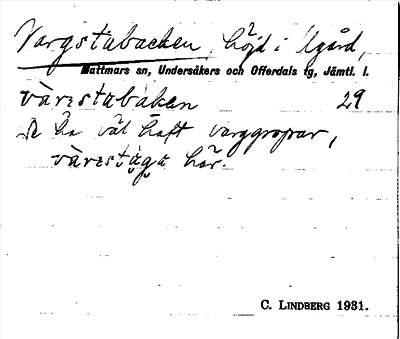 Vargstabacken, höjd i Ugård,
Mattmars sn, Undersåkers och Offerdals tg, Jämtl. l.
vàrestabakan 29
De ha väl haft varggropar,
vàrestaga här.
C. LINDBERG 1931.